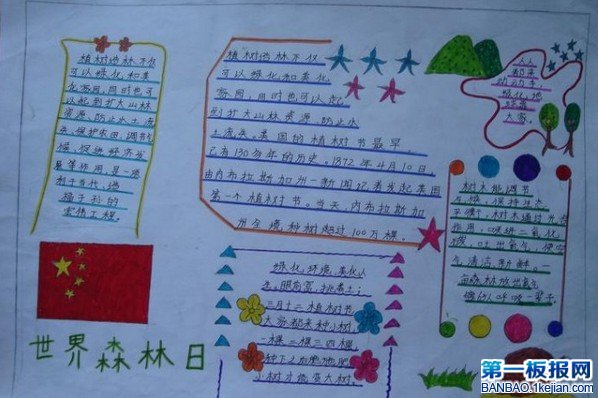 植树造林不仅
可以绿化和美
化家园,同时也可
以起到扩大山林
资源、防止水土流
失、保护农田、调节气
候、促进经济发
展等作用,是一项
利于当代、造
福子孙的
宏伟工程。
植树造林不仅
可以绿化和美化
家园,同时也可以起
到扩大山林资源、防止水
土流失。美国的植树节最早,
已有130多年的历史。1872年4月10日,
由内布拉斯加州一新闻记者发起美国
第一个植树节。当天,内布拉斯加
州全境种树超过100万棵。
人人
都来
动动手,
绿化地
球靠
大家。
树木能调节
气候,保持生态
平衡,树木通过光合
作用,吸进二氧化
碳,吐出氧气,使空
气清洁、新鲜。
一亩树林放出氧气
够65人呼吸一辈子。
绿化环境,美化人
三月十二植树节
大家都来种小树
一棵二棵三四棵
种下之后要施肥
小树才能变大树
世界森林日
第一板报网
BANBAO.1kejian.com